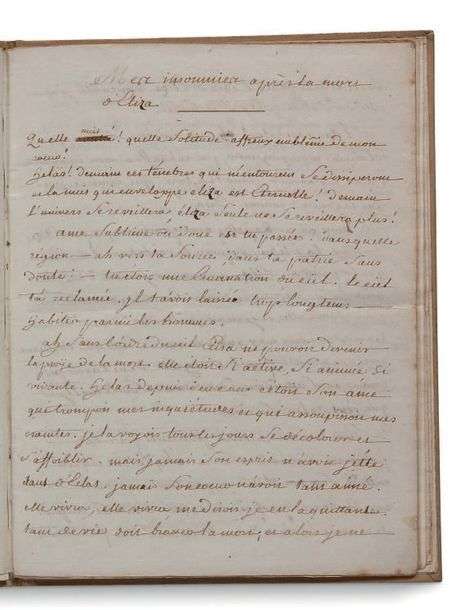 Mes insomnies après la mort
d'Eliza
Quelle nuit! quelle solitude affreux emblême de mon
coeur!
helas! demain ces ténebres qui m'entourent se dissiperont
et la nuit qui enveloppe eliza est Eternelle! demain
L'univers se reveillera eliza seule ne se reveillera plus!
ame sublime ou donc es tu passée. dans quelle
region — ah vers ta source; dans ta patrie sans
doute! — tu etois une Emanation du ciel. le ciel
t'a reclamée. il t'avoit laissée trop longtems
habiter parmi les hommes.
ah sans doute eliza ne pouvoit devenir
la proie de la mort. elle etoit si active, si animée si
vivante. helas depuis deux ans c'etoit son ame
qui trompoit mes inquiétudes et qui assoupissoit mes
craintes. je la voyois tous les jours se décolorer et
s'affoiblir. mais jamais son esprit n'avoit jetté
tant d'eclat. jamais son coeur n'avoit tant aimé.
elle vivra, elle vivra me disois-je en la quittant.
tant de vie doit braver la mort, et alors je ne